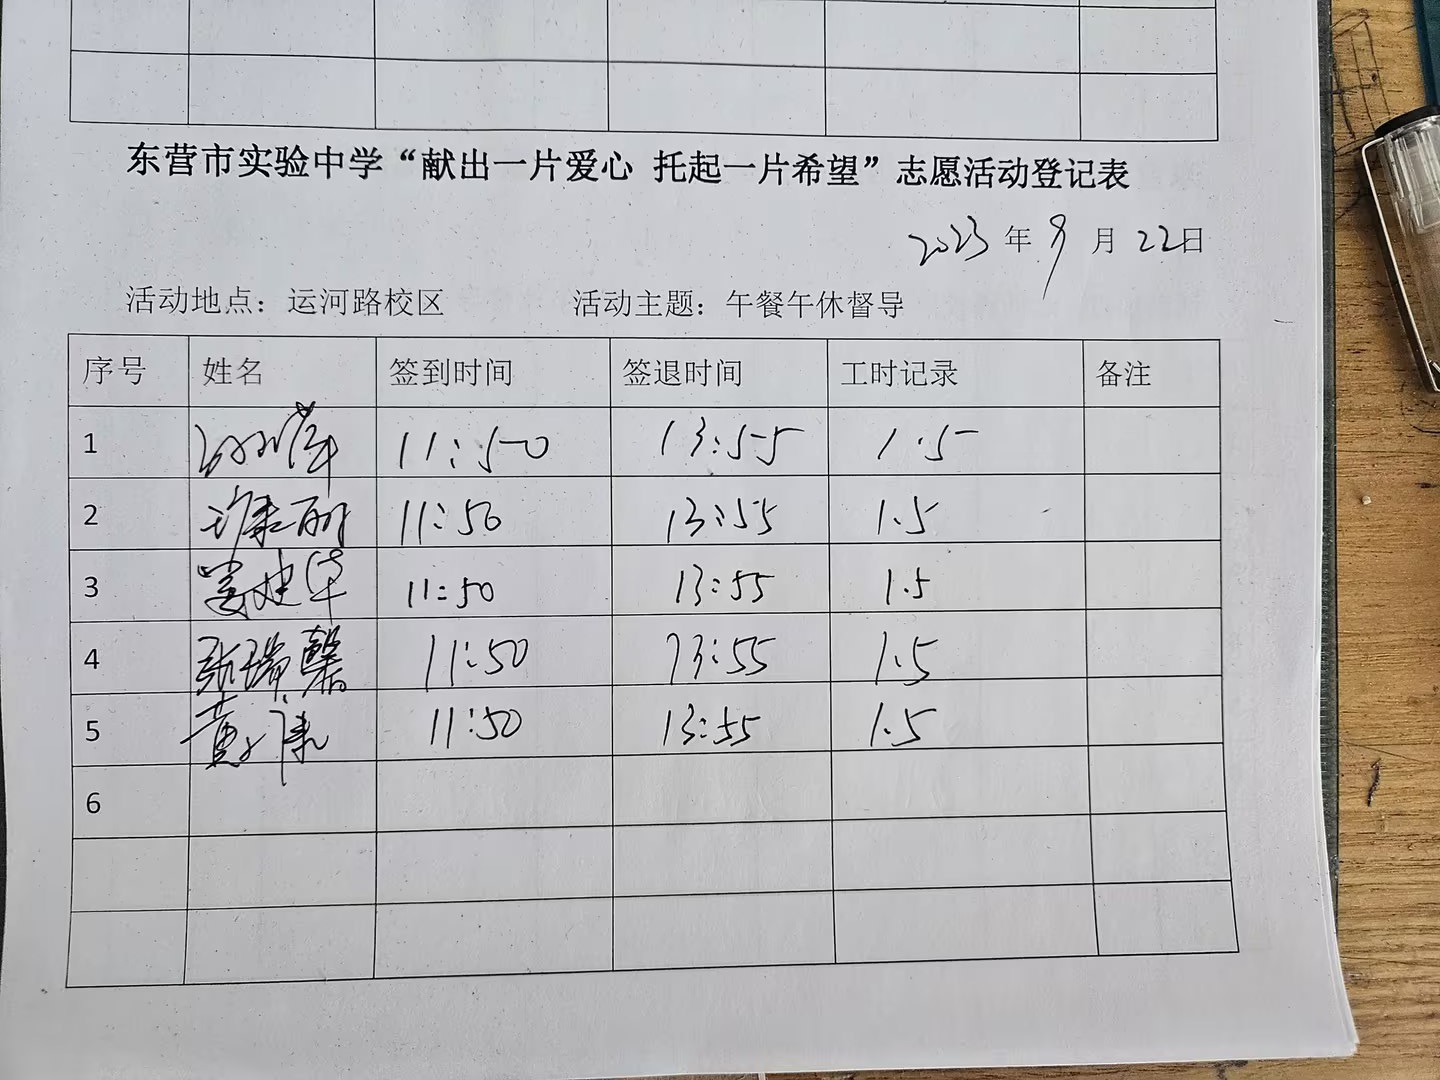 东营市实验中学“献出一片爱心 托起一片希望”志愿活动登记表
2023 年 9 月 22日
活动地点：运河路校区 活动主题：午餐午休督导
序号 姓名 签到时间 签退时间 工时记录 备注
1 11:50 13:55 1.5
2 11:50 13:55 1.5
3 姜建华 11:50 13:55 1.5
4 张瑞馨 11:50 13:55 1.5
5 黄 11:50 13:55 1.5
6